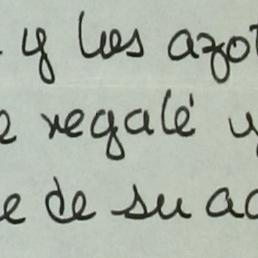 y los azo
e regalé y
e de su ac